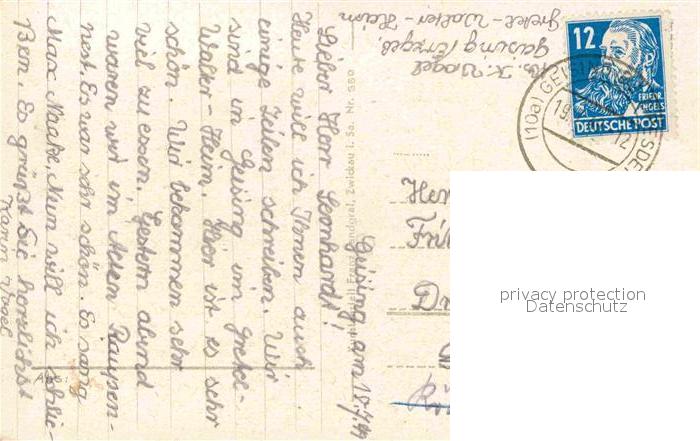 Geising, am 18.7.49
Lieber Herr Leonhardt!
Heute will ich Ihnen auch
einige Zeilen schreiben. Wir
sind in Geising im Gretel-
Walter-Heim. Hier ist es sehr
schön. Wir bekommen sehr
viel zu essen. Gestern abend
waren wir im Alten Raupen-
nest. Es war sehr schön. Es sang
Max Nacke. Nun will ich schlie-
ßen. Es grüßt Sie herzlichst
Karin Vogel
Abs.:
K. Vogel
Geising/Erzgeb.
Gretel-Walter-Heim
Franz Landgraf, Zwickau i. Sa. Nr. 559
12
FRIEDR.
ENGELS
DEUTSCHE POST
(10a) GEISI
19.
12
Her
Fri
Dr
privacy protection
Datenschutz